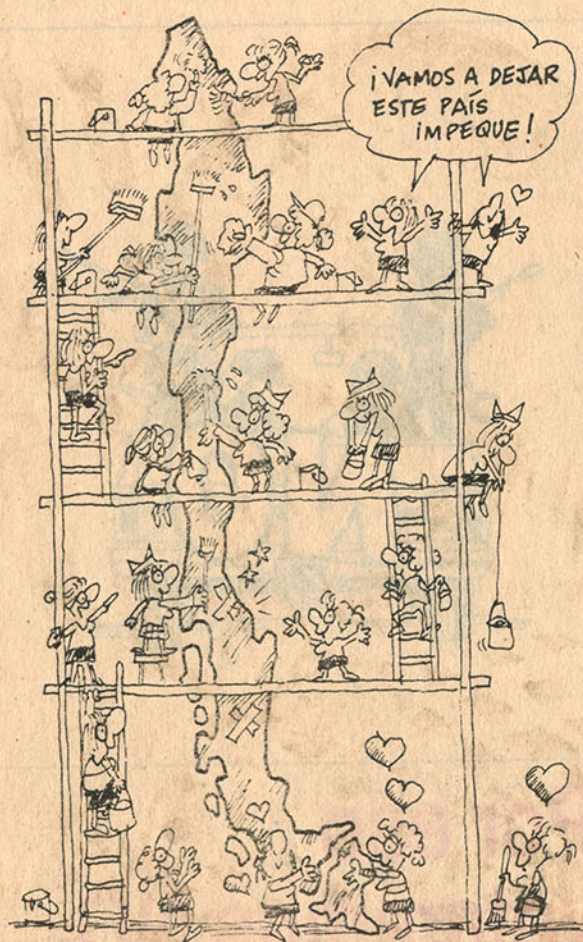 ¡VAMOS A DEJAR
ESTE PAÍS
IMPEQUE!